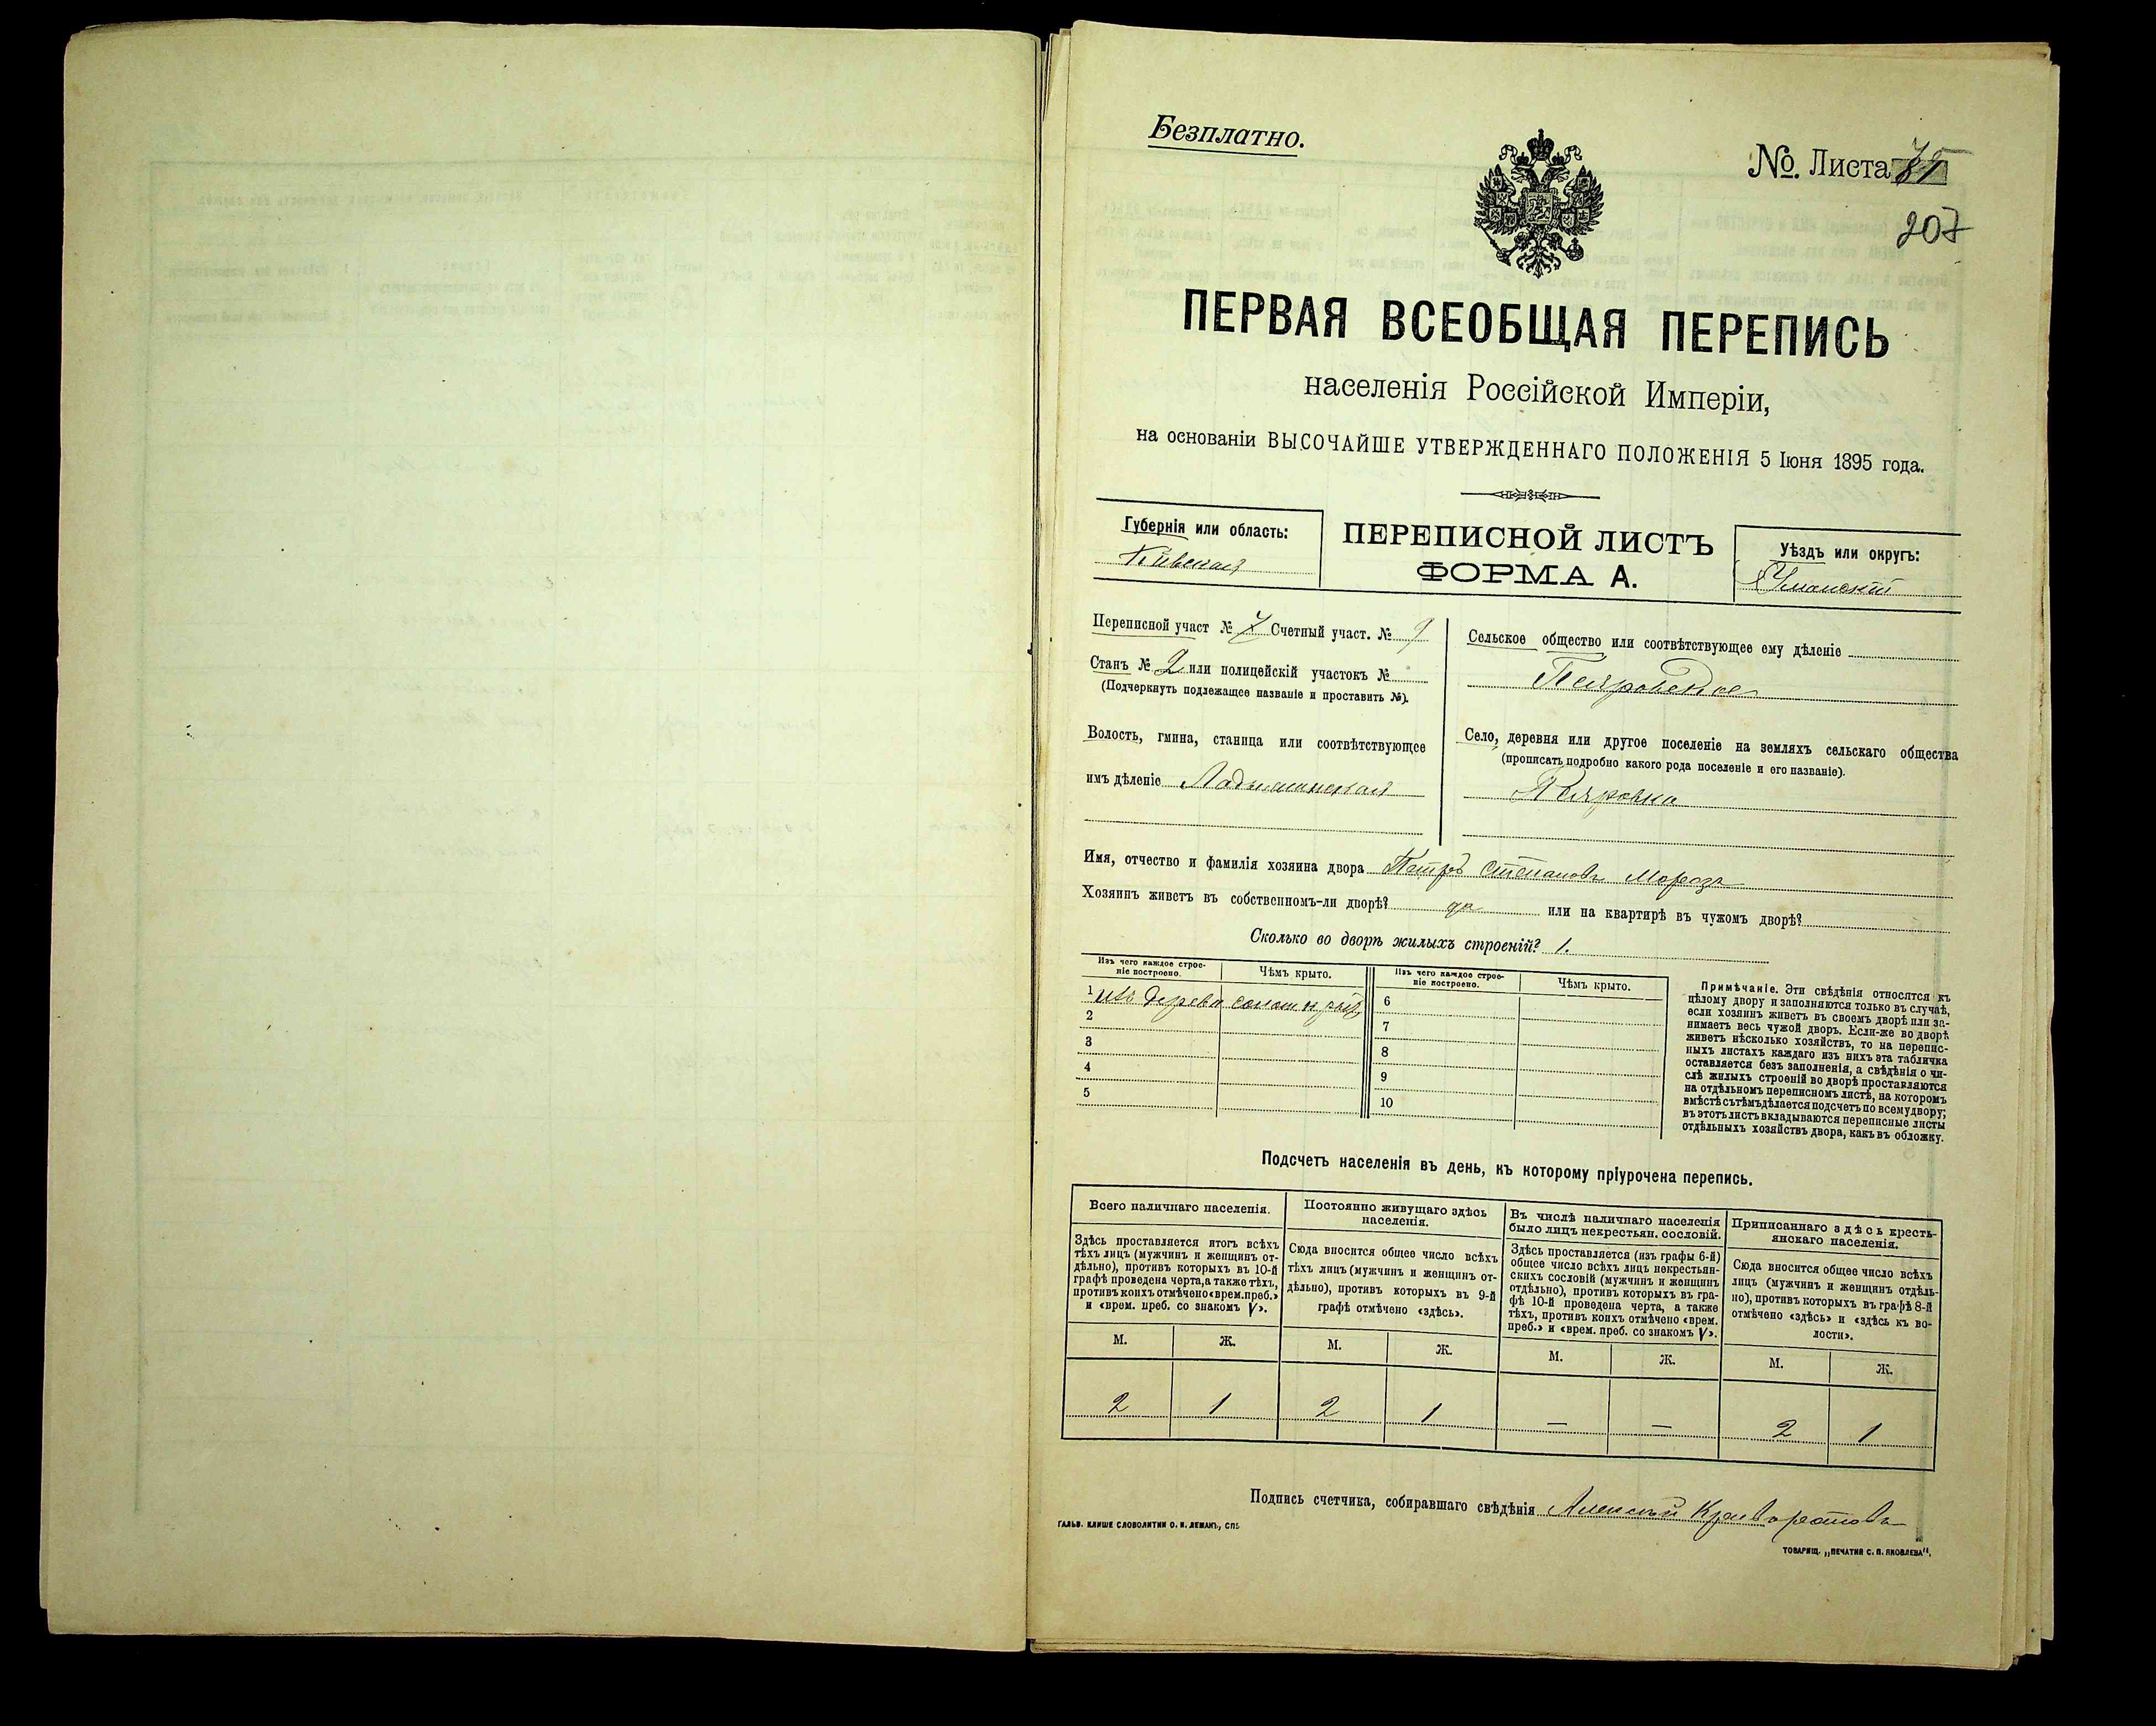 Безплатно.
№. Листа
207
ПЕРВАЯ ВСЕОБЩАЯ ПЕРЕПИСЬ
населенія Россійской Имперіи,
на основаніи ВЫСОЧАЙШЕ УТВЕРЖДЕННАГО ПОЛОЖЕНІЯ 5 Іюня 1895 года.
Губернія или область:
Кіевская
ПЕРЕПИСНОЙ ЛИСТЪ
ФОРМА А.
Уѣздъ или округъ:
Уманскій
Переписной участ № 7 Счетный участ. № 9
Станъ № 2 или полицейскій участокъ №
(Подчеркнуть подлежащее названіе и проставить №).
Волость, гмина, станица или соотвѣтствующее
имъ дѣленіе Ладыжинская
Сельское общество или соотвѣтствующее ему дѣленіе
Село, деревня или другое поселеніе на земляхъ сельскаго общества
(прописать подробно какого рода поселеніе и его названіе).
Имя, отчество и фамилія хозяина двора Петръ Степановъ Морозъ
Хозяинъ живетъ въ собственномъ-ли дворѣ? да или на квартирѣ въ чужомъ дворѣ?
Сколько во дворѣ жилыхъ строеній? 1.
Изъ чего каждое строе-
ніе построено.
Чѣмъ крыто.
1 изъ дерева
2
3
4
5
Изъ чего каждое строе-
ніе построено.
Чѣмъ крыто.
6
7
8
9
10
Примѣчаніе. Эти свѣдѣнія относятся къ
цѣлому двору и заполняются только въ случаѣ,
если хозяинъ живетъ въ своемъ дворѣ или за-
нимаетъ весь чужой дворъ. Если-же во дворѣ
живетъ нѣсколько хозяйствъ, то на перепис-
ныхъ листахъ каждаго изъ нихъ эта табличка
оставляется безъ заполненія, а свѣдѣнія о чи-
слѣ жилыхъ строеній во дворѣ проставляются
на отдѣльномъ переписномъ листѣ, на которомъ
вмѣстѣ съ тѣмъ дѣлается подсчетъ по всему двору;
въ этотъ листъ вкладываются переписные листы
отдѣльныхъ хозяйствъ двора, какъ въ обложку.
Подсчетъ населенія въ день, къ которому пріурочена перепись.
Всего наличнаго населенія.
Здѣсь проставляется итогъ всѣхъ
тѣхъ лицъ (мужчинъ и женщинъ от-
дѣльно), противъ которыхъ въ 10-й
графѣ проведена черта, а также тѣхъ,
противъ коихъ отмѣчено «врем. преб.»
и «врем. преб. со знакомъ V».
М. Ж.
2 1
Постоянно живущаго здѣсь
населенія.
Сюда вносится общее число всѣхъ
тѣхъ лицъ (мужчинъ и женщинъ от-
дѣльно), противъ которыхъ въ 9-й
графѣ отмѣчено «здѣсь».
М. Ж.
2 1
Въ числѣ наличнаго населенія
было лицъ некрестьян. сословій.
Здѣсь проставляется (изъ графы 6-й)
общее число всѣхъ лицъ некрестьян-
скихъ сословій (мужчинъ и женщинъ
отдѣльно), противъ которыхъ въ гра-
фѣ 10-й проведена черта, а также
тѣхъ, противъ коихъ отмѣчено «врем.
преб.» и «врем. преб. со знакомъ V».
М. Ж.
— —
Приписаннаго здѣсь кресть-
янскаго населенія.
Сюда вносится общее число всѣхъ
лицъ (мужчинъ и женщинъ отдѣль-
но), противъ которыхъ въ графѣ 8-й
отмѣчено «здѣсь» и «здѣсь къ во-
лости».
М. Ж.
2 1
Подпись счетчика, собиравшаго свѣдѣнія Алексѣй
ГАЛЬВ. КЛИШЕ СЛОВОЛИТНИ О. И. ЛЕМАНЪ, СПБ
ТОВАРИЩ. „ПЕЧАТНЯ С. П. ЯКОВЛЕВА".